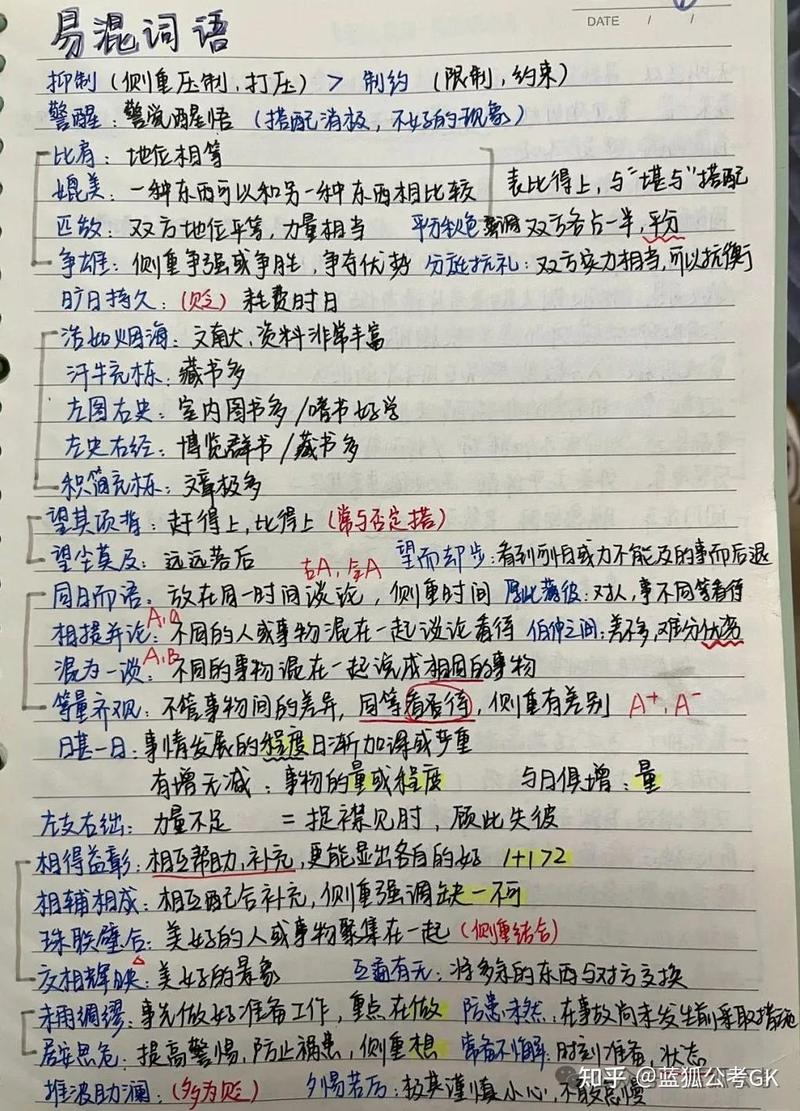 DATE / /
易混词语
抑制(侧重压制,打压) > 制约 (限制,约束)
警醒:警觉醒悟 (搭配消极,不好的现象)
比肩:地位相等
媲美:一种东西可以和另一种东西相比较 表比得上,与"堪与"搭配
匹敌:双方地位平等,力量相当 平分秋色 强调双方各占一半,平分
争雄:侧重争强或争胜,争夺优势 分庭抗礼:双方实力相当,可以抗衡
旷日持久:(贬) 耗费时日
浩如烟海:文献大,资料非常丰富
汗牛充栋:藏书多
左图右史:室内图书多/嗜书好学
左史右经:博览群书/藏书多
积简充栋:文章极多
望其项背:赶得上,比得上 (常与否定搭)
望尘莫及:远远落后 望而却步:看到可怕或力不能及的事而后退
古A,今A
同日而语:放在同一时间谈论,侧重时间 厚此薄彼:对人,事不同等看待
相提并论:不同的人或事物混在一起谈论看待 伯仲之间:差不多,难分优劣
混为一谈:A,B 不同的事物混在一起说成相同的事物
等量齐观:不管事物间的差异,同等看待,侧重有差别 A+,A-
日甚一日:事情发展的程度日渐加深或严重
有增无减:事物的量或程度 与日俱增:量
左支右绌:力量不足 =捉襟见肘,顾此失彼
相得益彰:相互帮助,补充,更能显出各自的好 1+1>2
相辅相成:相互配合补充,侧重强调缺一不可
珠联璧合:美好的人或事物聚集在一起 (侧重结合)
交相辉映:美好的景象 互通有无:将多余的东西与对方交换
未雨绸缪:事先做好准备工作,重点在做 防患未然,在事故尚未发生前采取措施
居安思危:提高警惕,防止祸患,侧重想 常备不懈:时刻准备,状态
推波助澜:(多为贬) 夕惕若厉:极其谨慎小心,不敢怠慢
知乎 @蓝狐公考GK